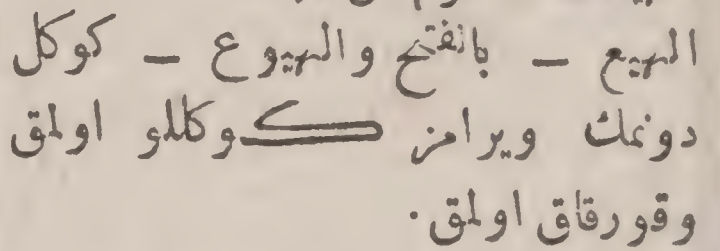 الهيع — بالفتح والهيوع — كوكل
دونمك ويرامز كوكللو اولمق
وقورقاق اولمق.